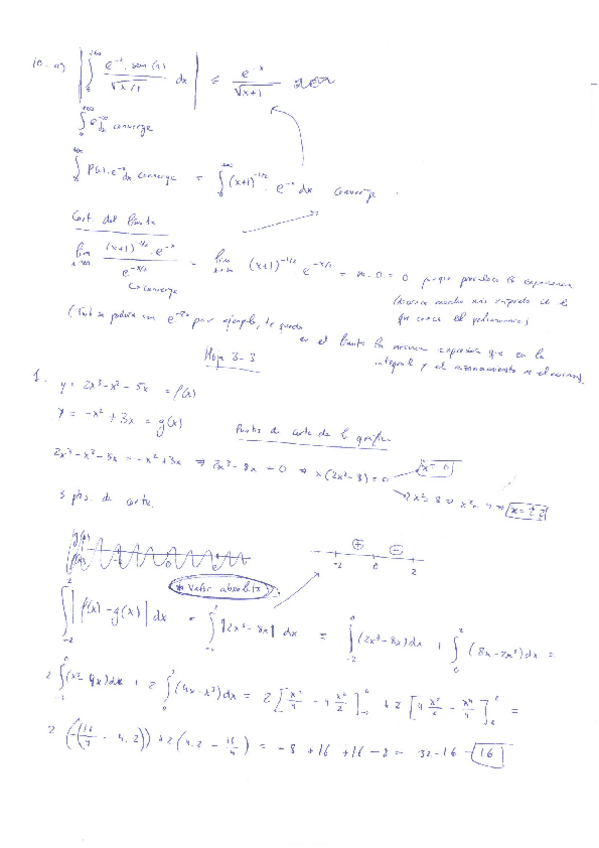 10. a) | ∫ e^-x · sen(x) / √x+1 dx | ≤ e^-x / √x+1
∫ e^-x dx converge
∫ P(x)·e^-x dx converge = ∫ (x+1)^-1/2 · e^-x dx converge
Crit. del límite
lim (x+1)^-1/2 · e^-x / e^-x/2 = lim (x+1)^-1/2 e^-x/2 = ∞·0 = 0 porque prevalece la exponencial
↳ converge (decrece mucho más rápido de lo
que crece el polinomio)
(También se podría con por ejemplo, te queda
en el límite la misma expresión que en la
integral y el razonamiento es el mismo).
Hoja 3-3
1. y = 2x³ - x² - 5x = f(x)
y = -x² + 3x = g(x)
Puntos de corte de la gráfica
2x³ - x² - 5x = -x² + 3x ⇒ 2x³ - 8x = 0 ⇒ x(2x² - 8) = 0 x = 0
2x² = 8 ⇒ x² = 4 ⇒ x = ± 2
3 ptos. de corte.
⊕ ⊖
-2 0 2
* Valor absoluto
∫ | f(x) - g(x) | dx = ∫ |2x³ - 8x| dx = ∫ (2x³ - 8x) dx + ∫ (8x - 2x³) dx =
2 ∫ (x³ - 4x) dx + 2 ∫ (4x - x³) dx = 2 [ x⁴/4 - 4 x²/2 ] + 2 [ 4 x²/2 - x⁴/4 ] =
2 (-(16/4 - 4·2)) + 2 (4·2 - 16/4) = -8 + 16 + 16 - 8 = 32 - 16 = 16